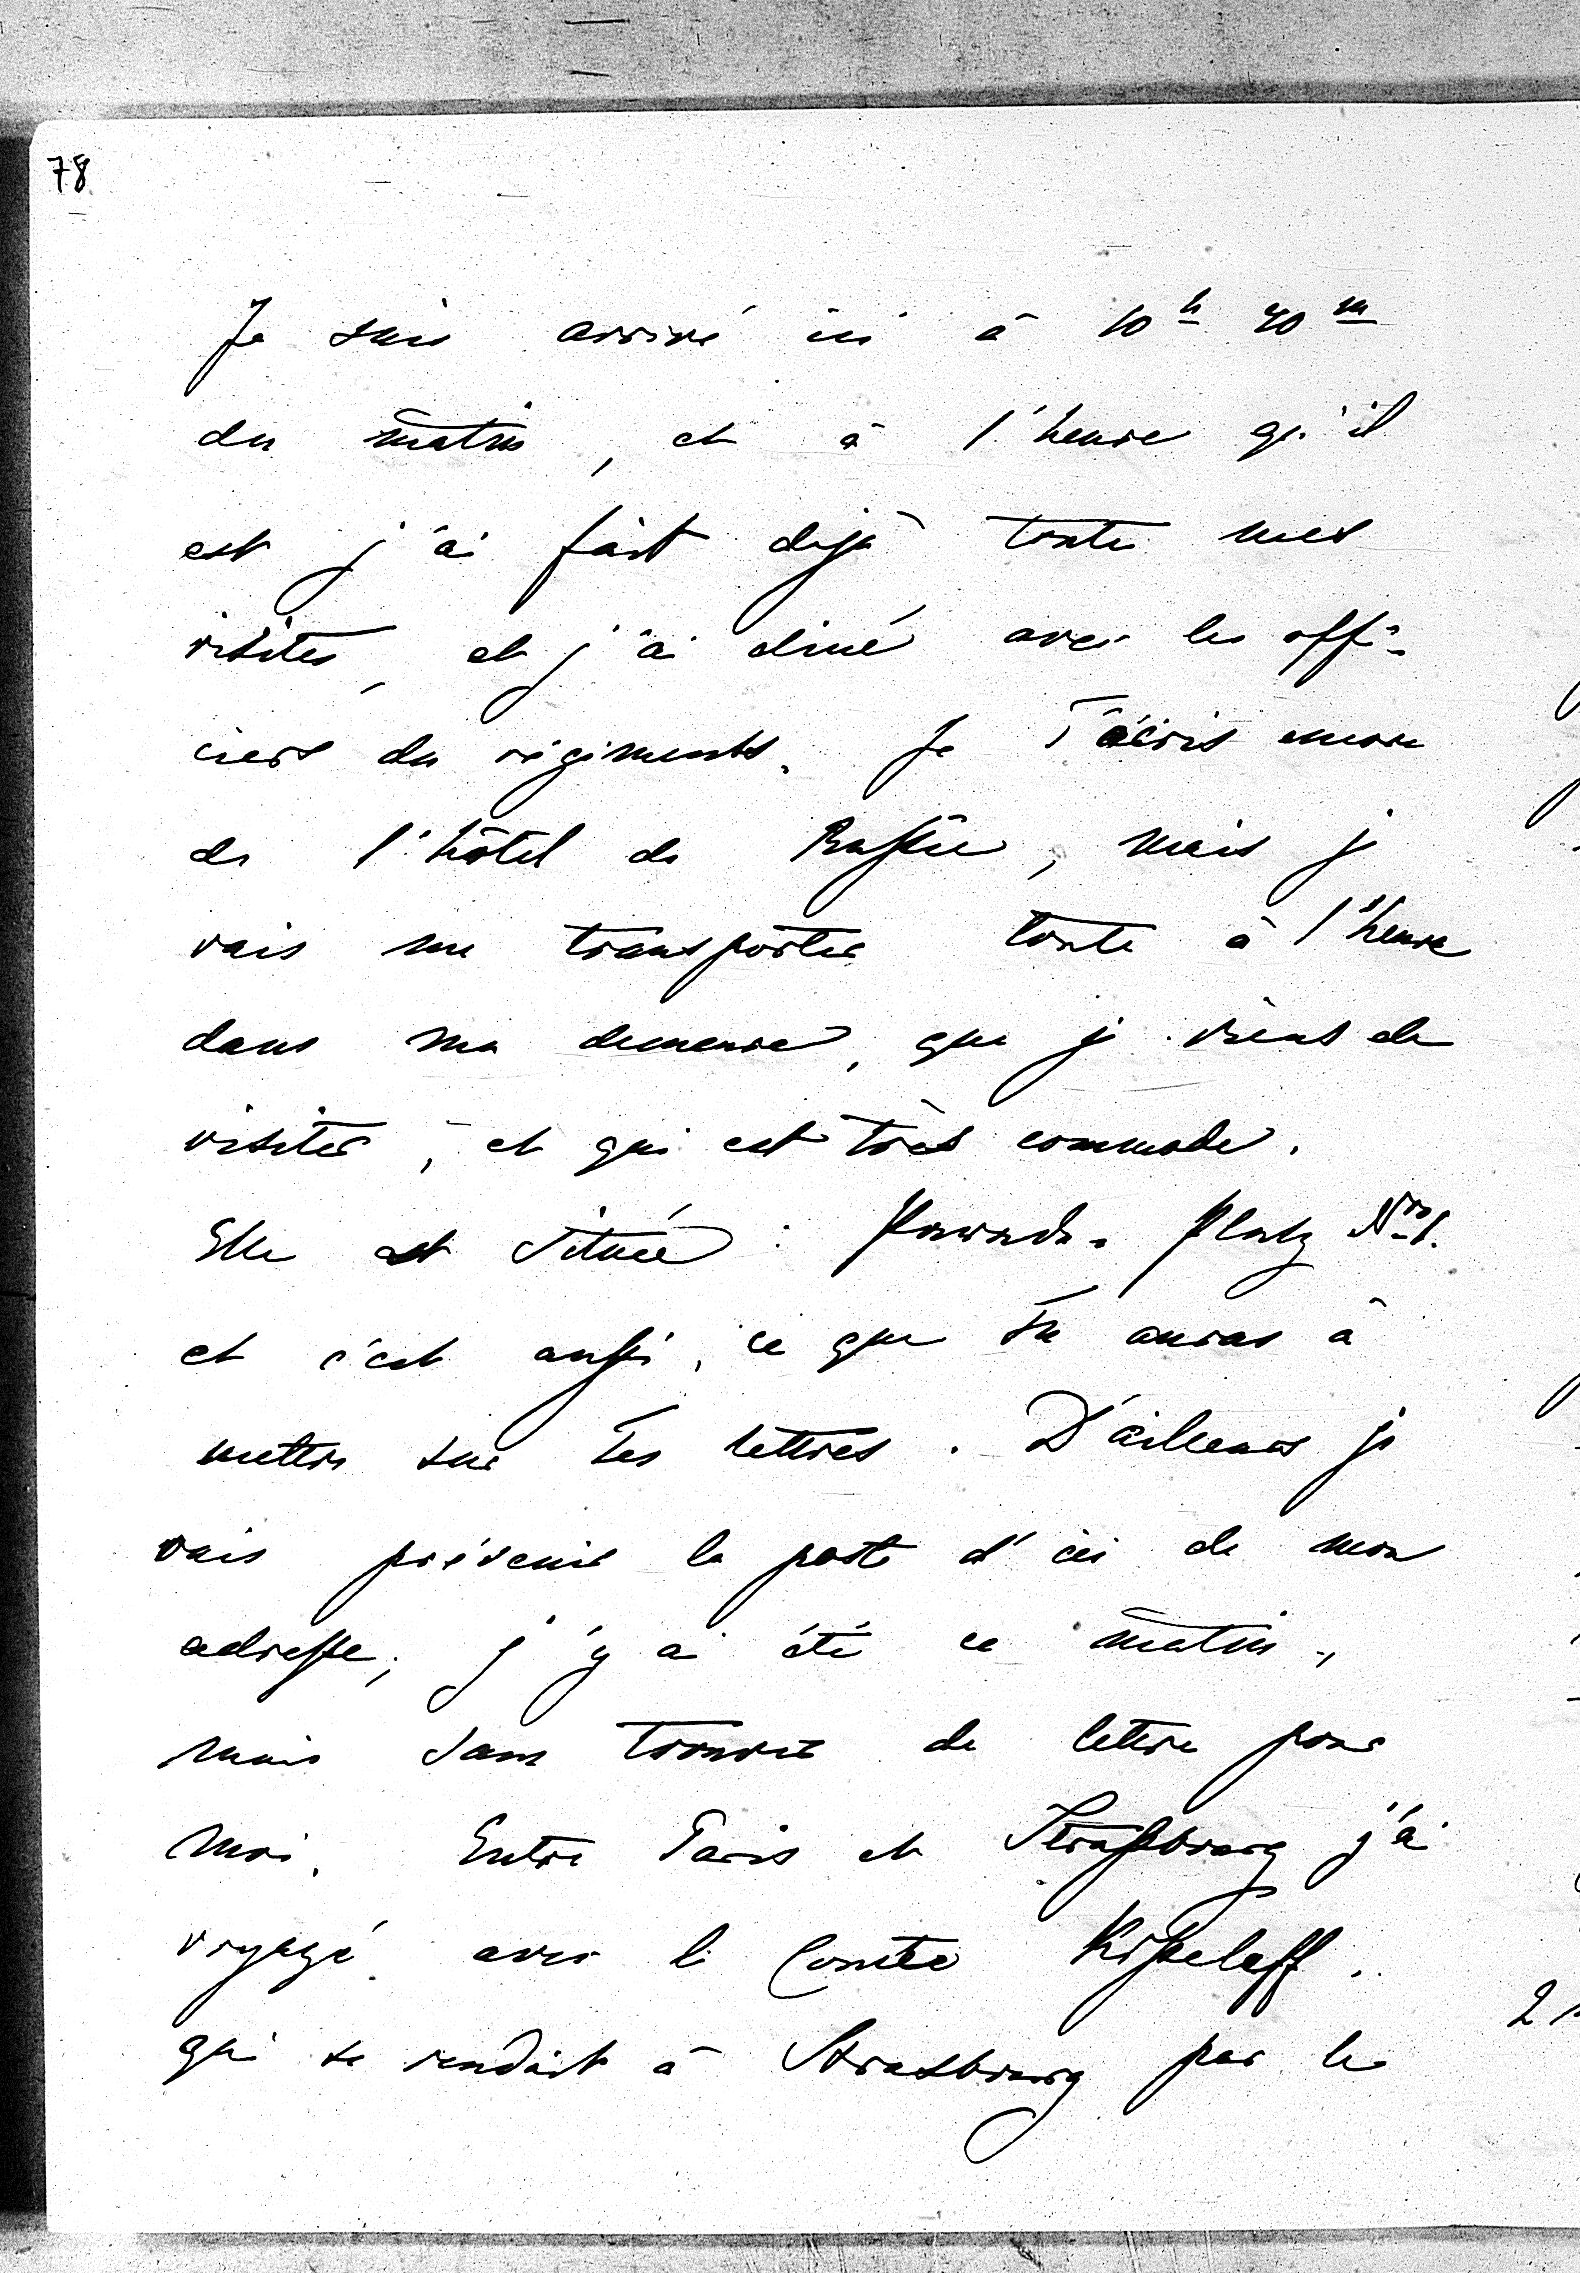 78
Je suis arrivé ici à 10 h 40 m
du matin, et à l'heure qu'il
est j'ai fait dejà toute mes
visites, et j'ai diné avec les offi-
ciers du régiments. Je T'écris encore
de l'hôtel de Russie, mais je
vais me transporter toute à l'heure
dans ma demeure, que je viens de
visiter, et qui est très commode.
Elle est située : Parade-Platz Nro 1.
et c'est aussi, ce que Tu auras à
mettre sur Tes lettres. D'ailleurs je
vais prévenir la poste d'ici de mon
adresse; j'y ai été ce matin,
mais sans trouver de lettre pour
moi. Entre Paris et Strassbourg j'ai
voyagé avec le Comte Kisseleff.
qui se rendait à Strasbourg par le